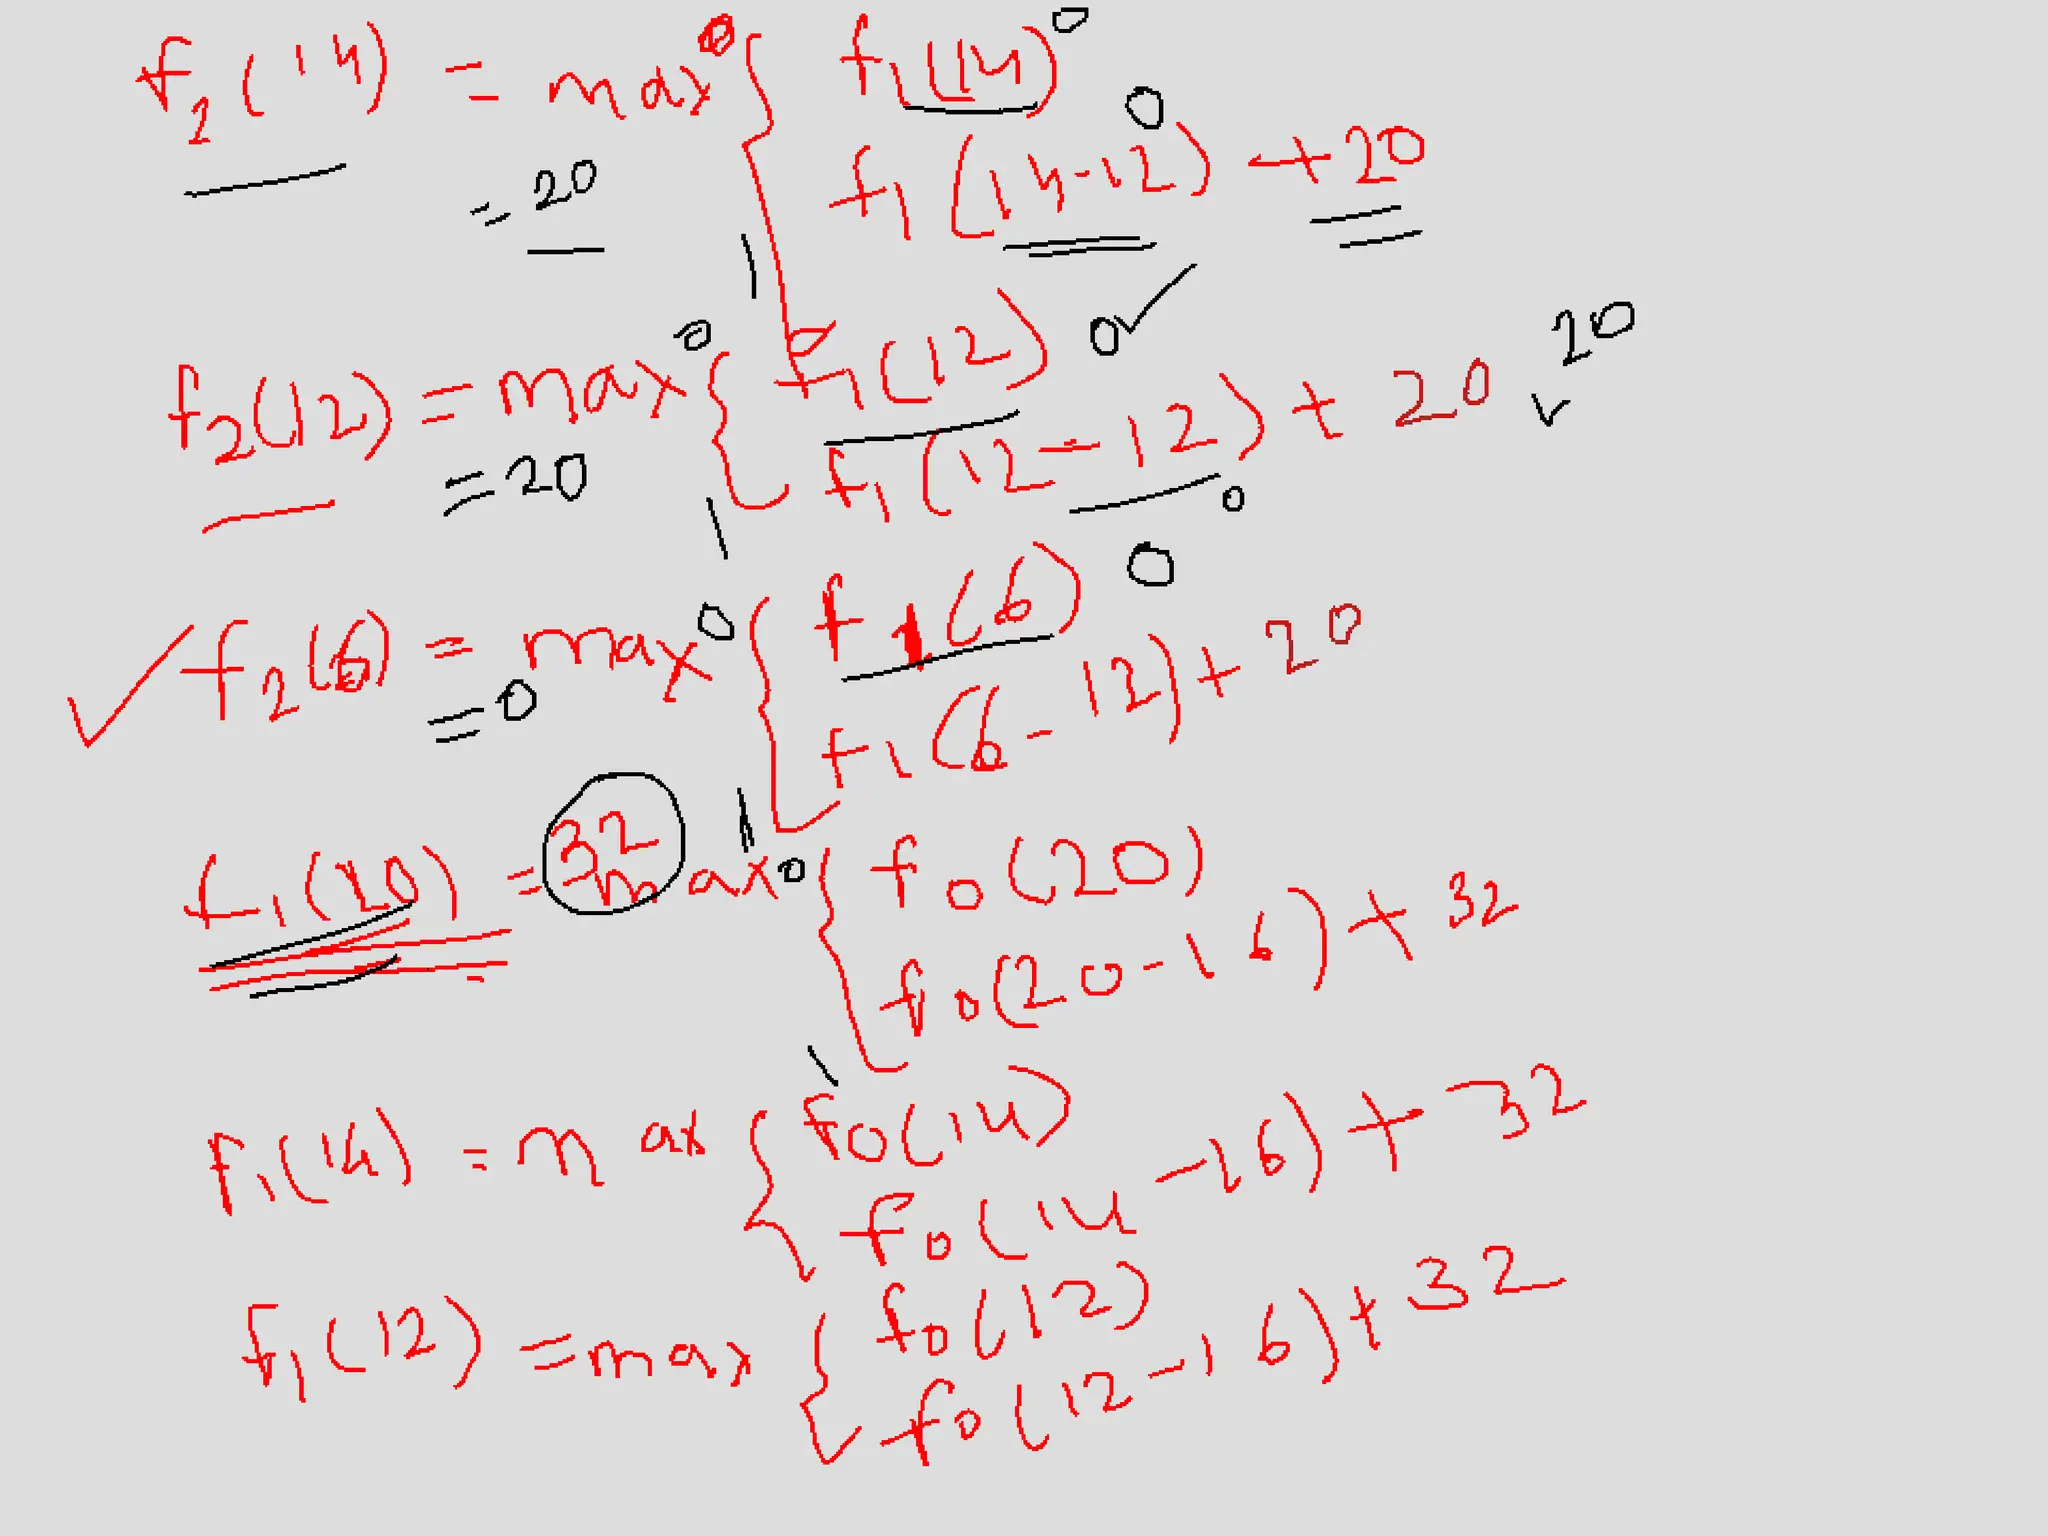 f2(14) = max 0 { f1(14) 0
f1(14-12) 0 + 20
= 20
1
f2(12) = max 0 { f1(12) 0 ✓
f1(12-12) + 20 ✓ 20
= 20
0
1
✓ f2(6) = max 0 { f1(6) 0
f1(6-12) + 20
= 0
1
f1(20) = 32 max 0 { f0(20)
f0(20-16) + 32
1
f1(14) = max { f0(14)
f0(14-16) + 32
f1(12) = max { f0(12)
f0(12-16) + 32